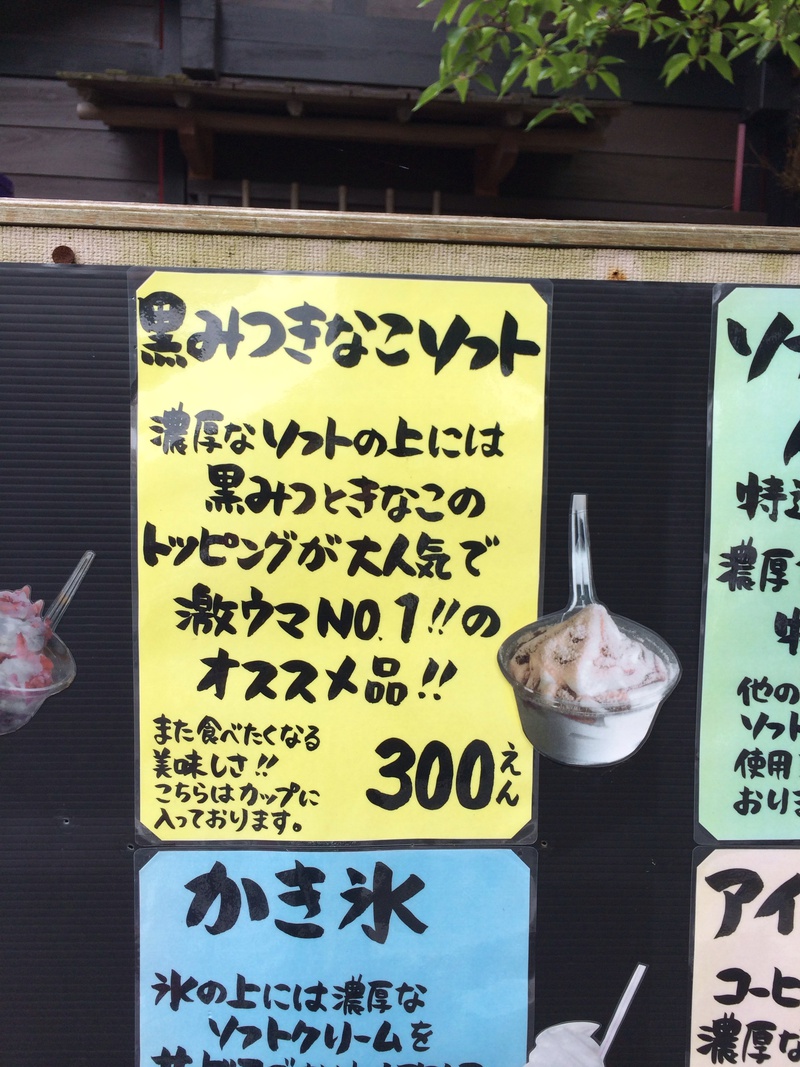 黒みつきなこソフト
濃厚なソフトの上には
黒みつときなこの
トッピングが大人気で
激ウマNO.1!!の
オススメ品!!
また食べたくなる
美味しさ!!
こちらはカップに
入っております。
300えん
かき氷
氷の上には濃厚な
ソフトクリームを
ソフ
特
濃厚
他の
ソフト
使用
おりま
アイ
コーヒ
濃厚な